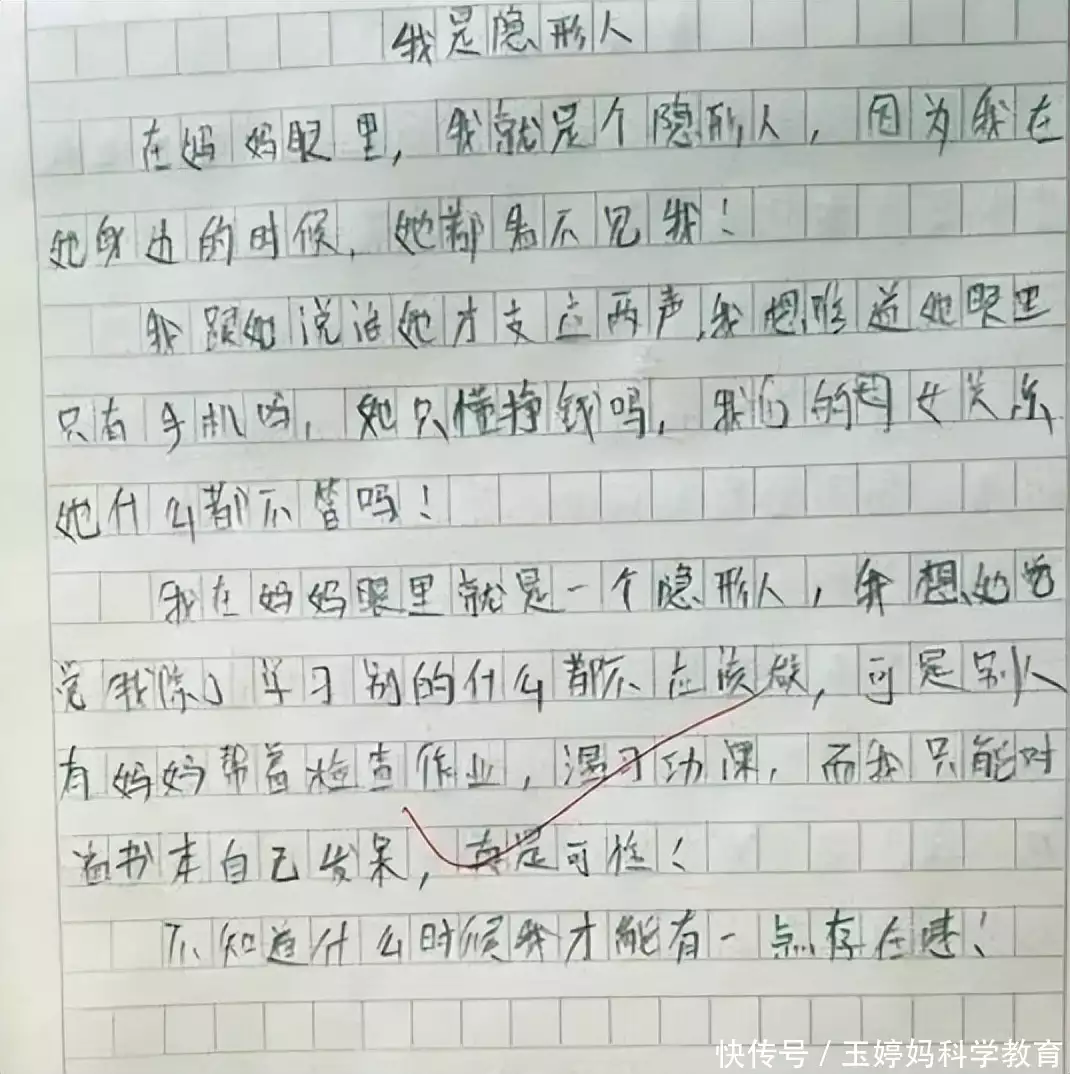 我是隐形人
在妈妈眼里，我就是个隐形人，因为我在
她身边的时候，她都看不见我！
我跟她说话她才支应两声，我想难道她眼里
只有手机吗，她只懂挣钱吗，我们的母女关系
她什么都不管吗！
我在妈妈眼里就是一个隐形人，我想她也
觉我除了学习别的什么都不应该做，可是别人
有妈妈帮着检查作业，温习功课，而我只能对
着书本自己发呆，真是可怜！
不知道什么时候我才能有一点存在感！
快传号 / 玉婷妈科学教育